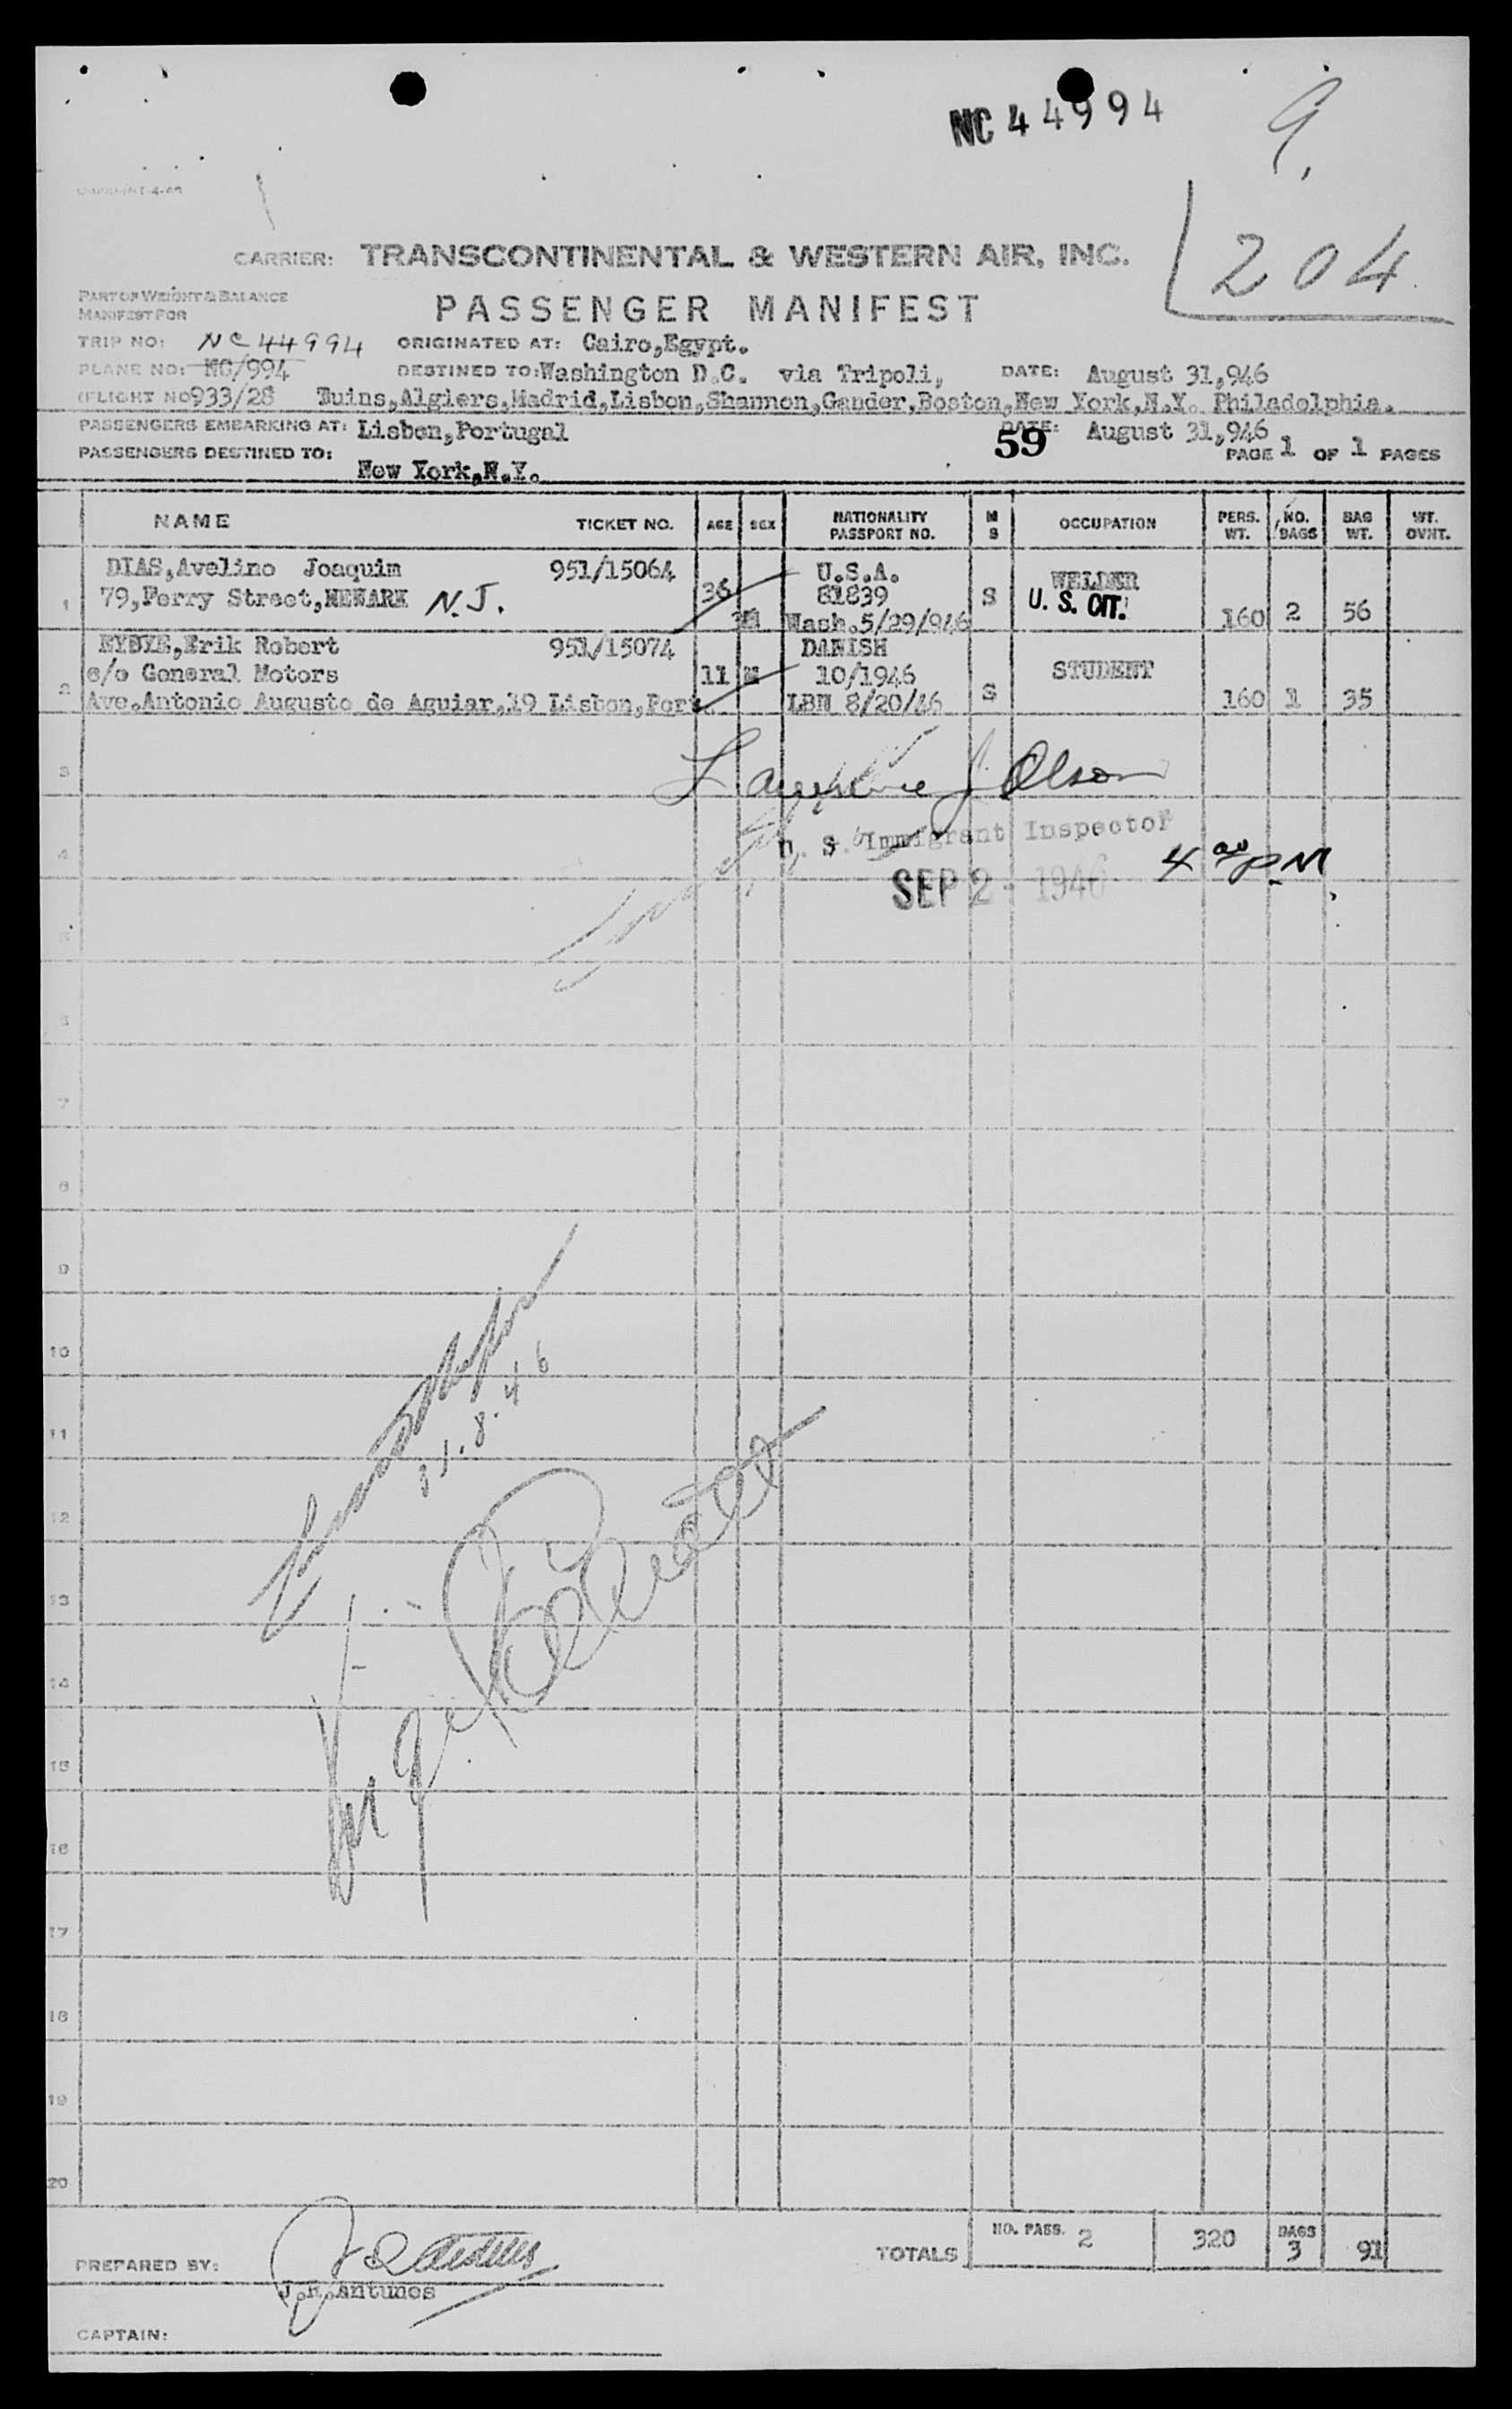 NC 44994
9.
204
CARRIER: TRANSCONTINENTAL & WESTERN AIR, INC.
PART OF WEIGHT & BALANCE
MANIFEST FOR
PASSENGER MANIFEST
TRIP NO: NC44994 ORIGINATED AT: Cairo,Egypt.
PLANE NO: NC/994 DESTINED TO: Washington D.C. via Tripoli, DATE: August 31,946
(FLIGHT NO 933/28 Tuins,Algiers,Madrid,Lisbon,Shannon,Gander,Boston,New York,N.Y. Philadelphia.
PASSENGERS EMBARKING AT: Lisbon,Portugal 59 DATE: August 31,946
PASSENGERS DESTINED TO: New York,N.Y. PAGE 1 OF 1 PAGES
NAME TICKET NO. AGE SEX NATIONALITY PASSPORT NO. M S OCCUPATION PERS. WT. NO. BAGS BAG WT. WT. OVNT.
1 DIAS,Avelino Joaquim 951/15064 U.S.A. WELDER
79,Ferry Street,NEWARK N.J. 36 81839 S U. S. CIT. 160 2 56
M Wash.5/29/946
2 NYBYE,Erik Robert 951/15074 DANISH
c/o General Motors 11 M 10/1946 S STUDENT
Ave.Antonio Augusto de Aguiar,19 Lisbon,Port. LBN 8/20/46 160 1 35
3 Lawrence J. Olson
4 U. S. Immigrant Inspector
SEP 2 - 1946 4 00 P.M.
5
6
7
8
9
10
31.8.46
11
12
13
14
15
16
17
18
19
20
TOTALS NO. PASS. 2 320 BAGS 3 91
PREPARED BY:
J.R.Antunes
CAPTAIN: